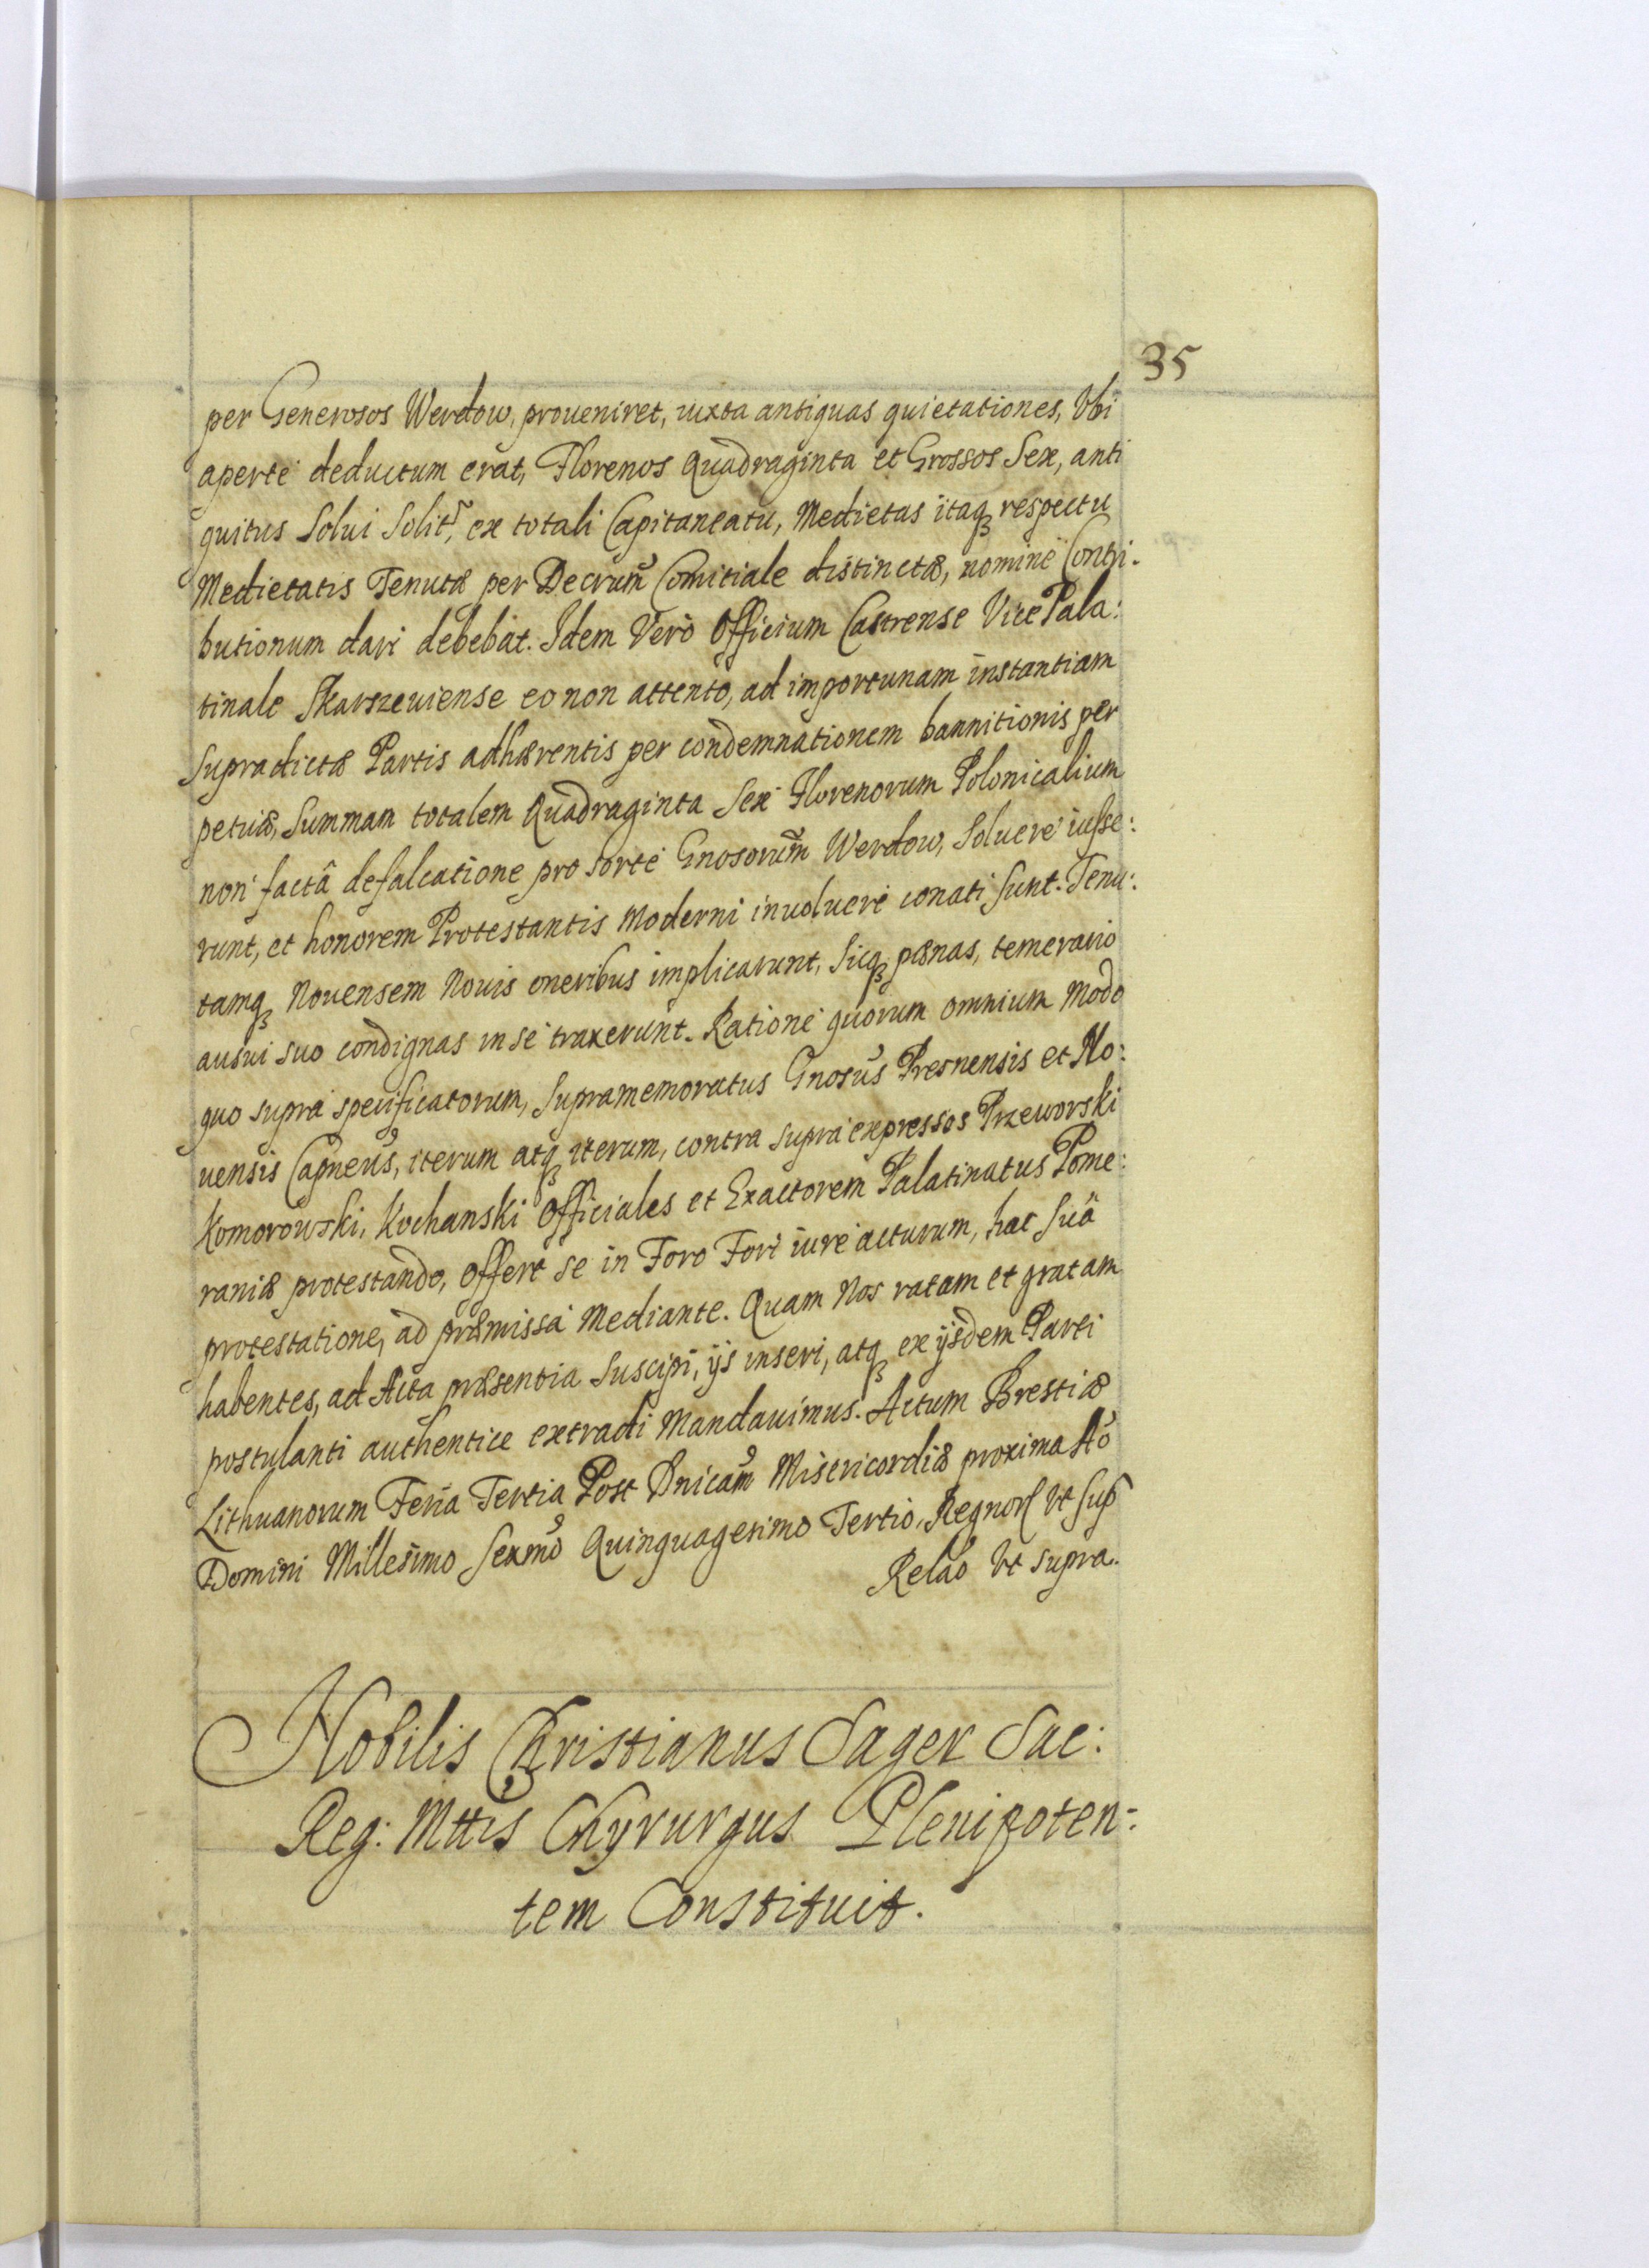 35
per Generosos Werdow, proueniret, iuxta antiquas quietationes, Vbi
aperte deductum erat, Florenos Quadraginta et Grossos Sex, anti
quitus Solui Solitˢ, ex totali Capitaneatu, Medietas itaqꝫ respectu
Medietatis Tenutæ per Decrum̃ Comitiale distinctæ, nomine Contri.
butionum dari debebat. Idem Verò Officium Castrense Vice Pala:
tinale Skarszeuiense eo non attento, ad importunam instantiam
Supradictæ Partis adhærentis per condemnationem bannitionis per
petuæ, Summam totalem Quadraginta Sex Florenorum Polonicalium
non factâ defalcatione pro sorte Gnosorum̃ Werdow, Soluere iusse:
runt, et honorem Protestantis Moderni inuoluere conati Sunt. Tenu:
tamqꝫ Nouensem Nouis oneribus implicarunt, Sicqꝫ pænas, temerario
ausui suo condignas in se traxerunt. Ratione quorum omnium Modo
quo supra specificatorum, Supramemoratus Gnosus̃ Presnensis et No:
uensis Capneus̃, iterum atqꝫ iterum, contra supra expressos Przeworski
Komorowski, Kochanski Officiales et Exactorem Palatinatus Pome:
raniæ protestando, offert se in Foro Fori iure acturum, hac Suâ
protestatione, ad præmissa Mediante. Quam Nos ratam et gratam
habentes, ad Acta præsentia Suscipi, ijs inseri, atqꝫ ex ijsdem Parti
postulanti authentice extradi Mandauimus. Actum Brestiæ
Lithuanorum Feria Tertia Post Dnicam̃ Misericordiæ proxima Aõ
Domini Millesimo Sexmõ Quinquagesimo Tertio, Regnorꝭ Vt Sup̃
Relão Vt supra.
Nobilis Christianus Sager Sac:
Reg: Mttis Chyrurgus Plenipoten:
tem Constituit.